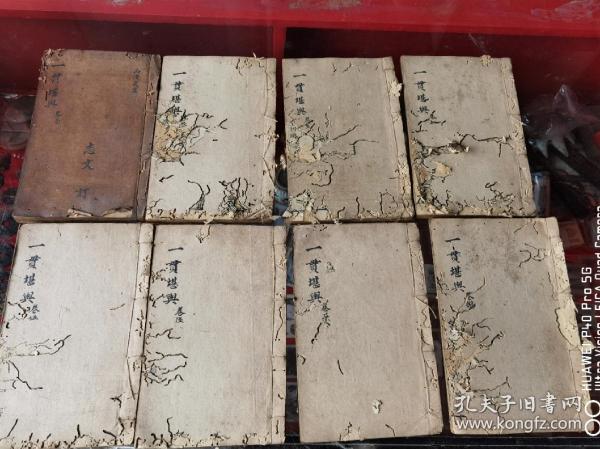 一貫堪輿
志文訂
一貫堪輿
一貫堪輿
一貫堪輿
一貫堪輿 卷伍
一貫堪輿 卷陸
一貫堪輿
一貫堪輿
HUAWEI P40 Pro 5G
Ultra Vision LEICA Quad Camera
孔夫子旧書网
www.kongfz.com